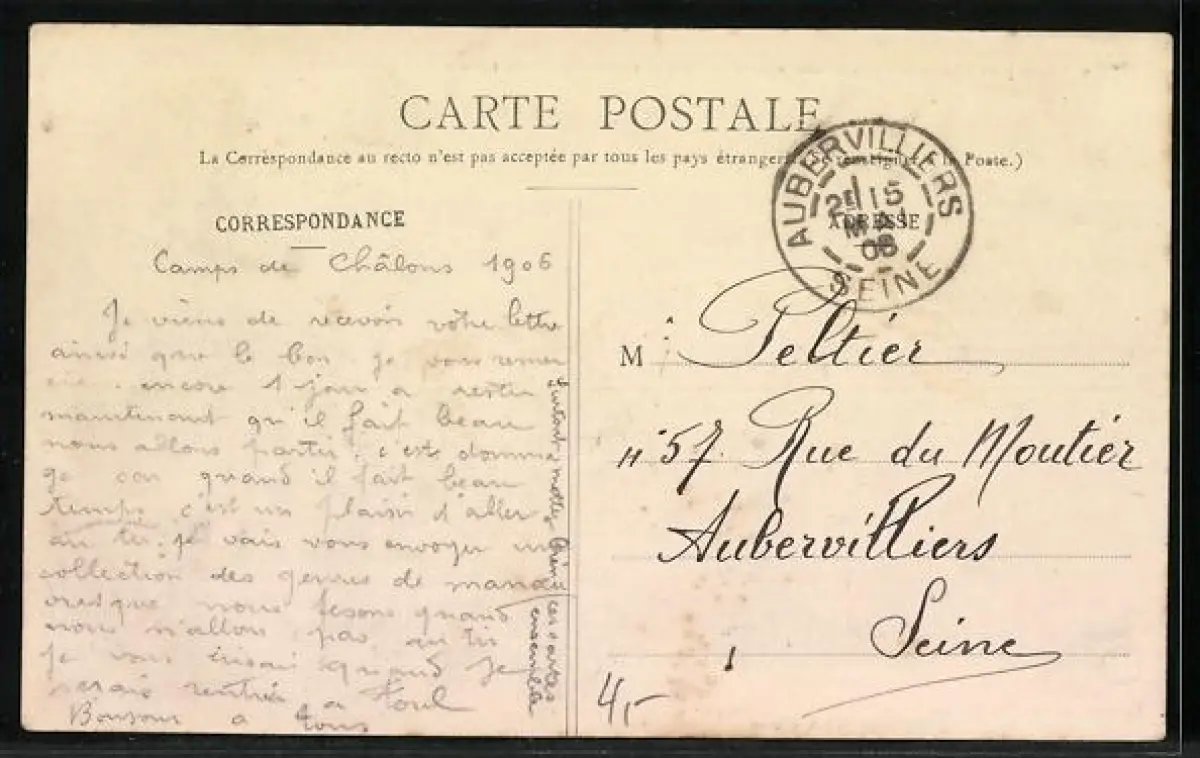 CARTE POSTALE
La Correspondance au recto n'est pas acceptée par tous les pays étrangers à la Poste.)
CORRESPONDANCE
Camps de Châlons 1906
Je viens de recevoir votre lettre
ainsi que le bon je vous remer
cie. encore 1 jour a rester
maintenant qu'il fait beau
nous allons partir. c'est domma
ge car quand il fait beau
temps c'est un plaisir d'aller
au tir. je vais vous envoyer une
collection des genres de manœu
vres que nous fesons quand
nous n'allons pas au tir
je vous écrirai quand je
serais rentrée a Toul
Bonjour a tous
Surtout mettez bien ces cartes
ensemble
AUBERVILLIERS
2E 15
MAI
06
SEINE
ADRESSE
M Peltier
n° 57 Rue du Moutier
Aubervilliers
Seine
4,-